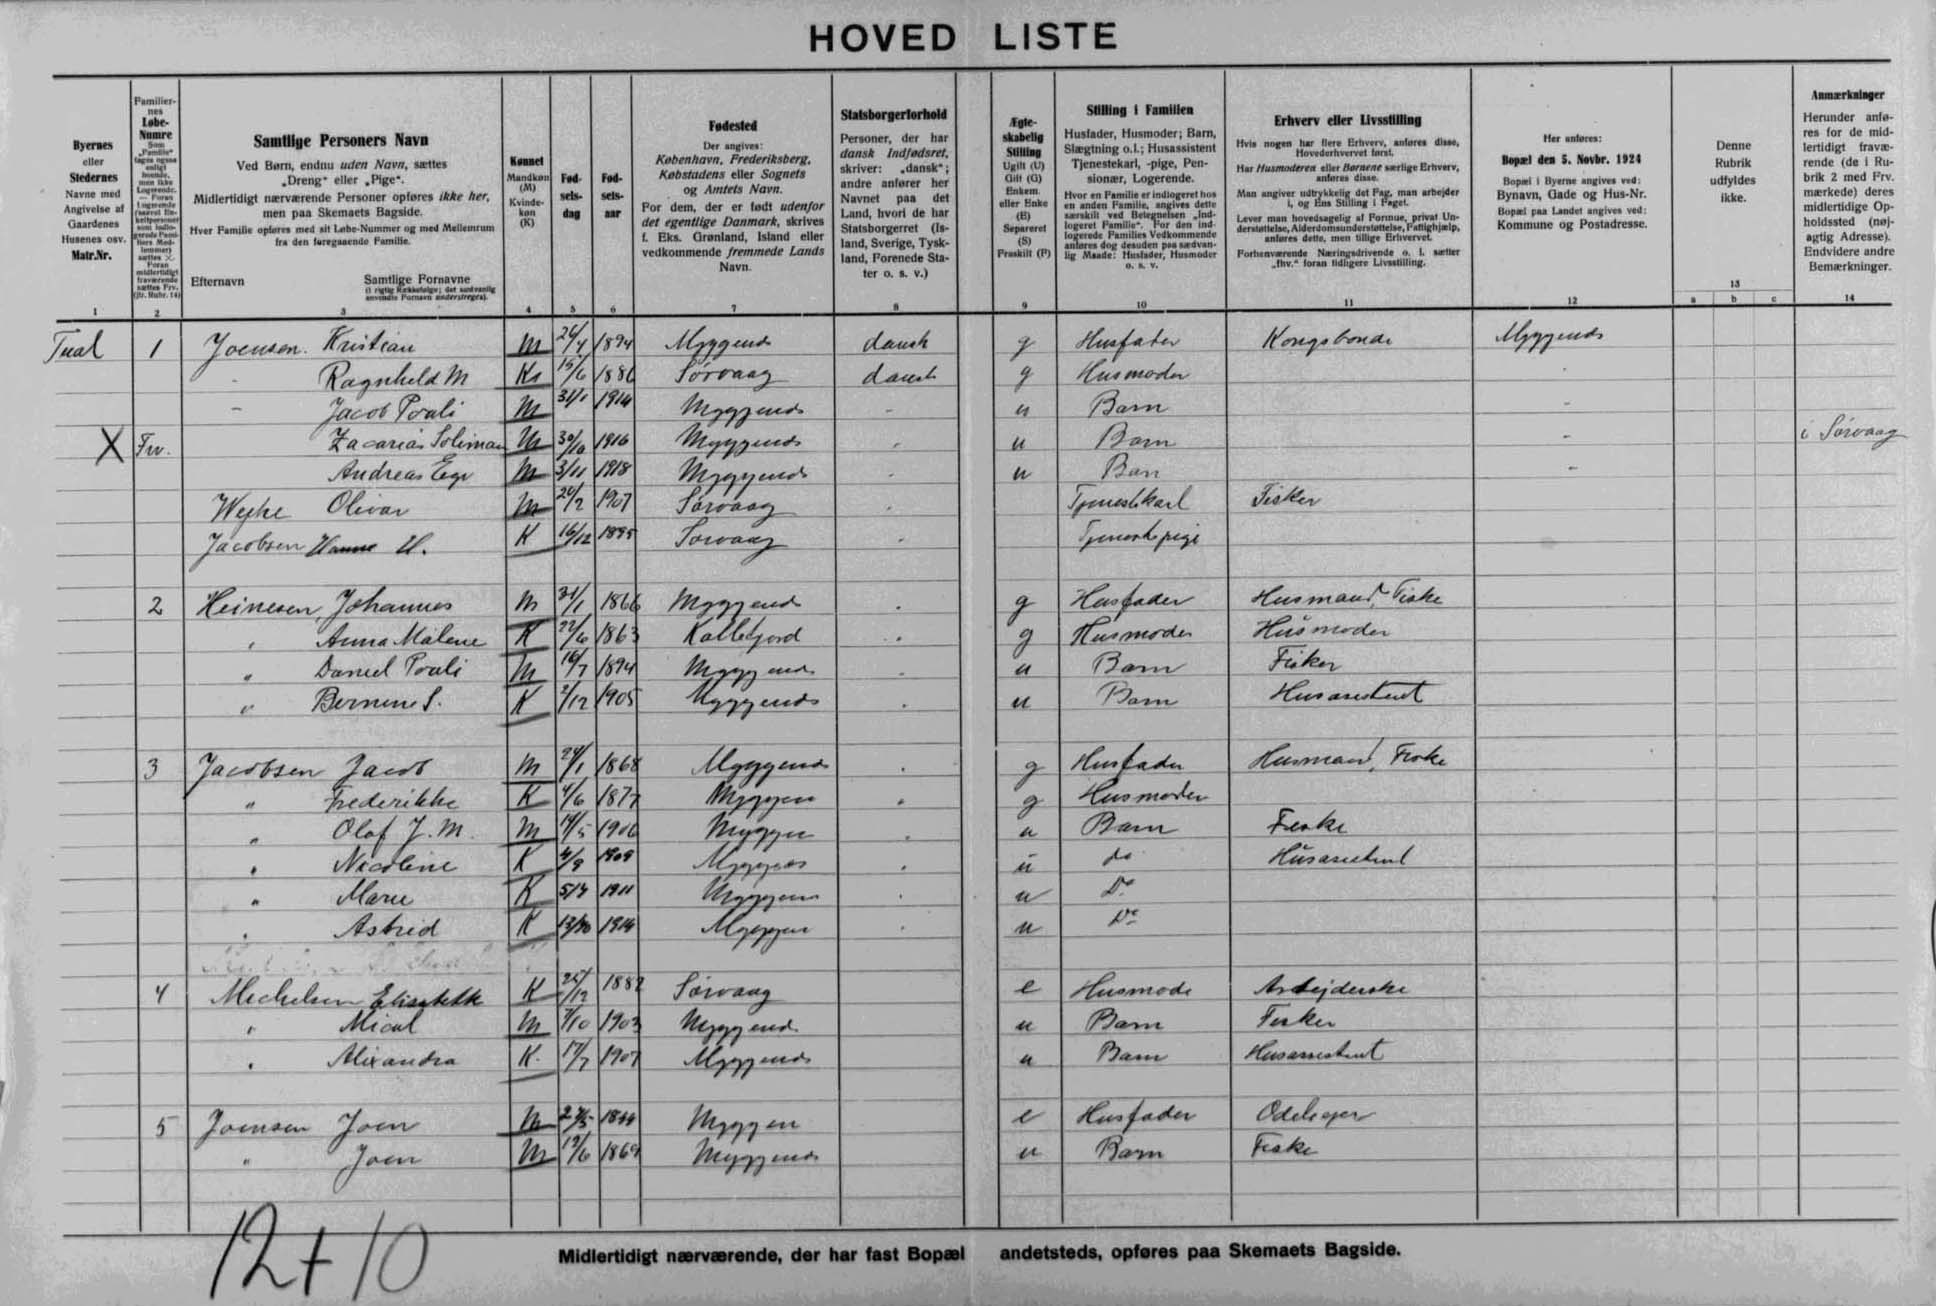 HOVED LISTE
Byernes
eller
Stedernes
Navne med
Angivelse af
Gaardenes
Husenes osv.
Matr.Nr.
1
Familier-
nes
Løbe-
Numre
2
Samtlige Personers Navn
Ved Børn, endnu uden Navn, sættes
„Dreng“ eller „Pige“.
Midlertidigt nærværende Personer opføres ikke her,
men paa Skemaets Bagside.
Hver Familie opføres med sit Løbe-Nummer og med Mellemrum
fra den foregaaende Familie.
Efternavn
Samtlige Fornavne
(i rigtig Rækkefølge; det sædvanlig
anvendte Fornavn understreges).
3
Kønnet
Mandkøn
(M)
Kvinde-
køn
(K)
4
Fød-
sels-
dag
5
Fød-
sels-
aar
6
Fødested
Der angives:
København, Frederiksberg,
Købstadens eller Sognets
og Amtets Navn.
For dem, der er født udenfor
det egentlige Danmark, skrives
f. Eks. Grønland, Island eller
vedkommende fremmede Lands
Navn.
7
Statsborgerforhold
Personer, der har
dansk Indfødsret,
skriver: „dansk“;
andre anfører her
Navnet paa det
Land, hvori de har
Statsborgerret (Is-
land, Sverige, Tysk-
land, Forenede Sta-
ter o. s. v.)
8
Ægte-
skabelig
Stilling
Ugift (U)
Gift (G)
Enkem.
eller Enke
(E)
Separeret
(S)
Fraskilt (F)
9
Stilling i Familien
Husfader, Husmoder; Barn,
Slægtning o.l.; Husassistent
Tjenestekarl, -pige, Pen-
sionær, Logerende.
Hvor en Familie er indlogeret hos
en anden Familie, angives dette
særskilt ved Betegnelsen „Ind-
logeret Familie“. For den ind-
logerede Families Vedkommende
anføres dog desuden paa sædvan-
lig Maade: Husfader, Husmoder
o. s. v.
10
Erhverv eller Livsstilling
Hvis nogen har flere Erhverv, anføres disse,
Hovederhvervet først.
Har Husmoderen eller Børnene særlige Erhverv,
anføres disse.
Man angiver udtrykkelig det Fag, man arbejder
i, og Ens Stilling i Faget.
Lever man hovedsagelig af Formue, privat Un-
derstøttelse, Alderdomsunderstøttelse, Fattighjælp,
anføres dette, men tillige Erhvervet.
Forhenværende Næringsdrivende o. l. sætter
„fhv.“ foran tidligere Livsstilling.
11
Her anføres:
Bopæl den 5. Novbr. 1924
Bopæl i Byerne angives ved:
Bynavn, Gade og Hus-Nr.
Bopæl paa Landet angives ved:
Kommune og Postadresse.
12
Denne
Rubrik
udfyldes
ikke.
13
a b c
Anmærkninger
Herunder anfø-
res for de mid-
lertidigt fravæ-
rende (de i Ru-
brik 2 med Frv.
mærkede) deres
midlertidige Op-
holdssted (nøj-
agtig Adresse).
Endvidere andre
Bemærkninger.
14
1 Joensen Kristian M 1894 Myggenæs dansk g Husfader Kongsbonde Myggenæs
Ragnheld M 15/6 1886 Sørvaag dansk g Husmoder
Jacob Pouli M 31/1 1914 Myggenæs u Barn
X Frv. Zacarias Soliman M 30/10 1916 Myggenæs u Barn i Sørvaag
Andreas M 3/11 1918 Myggenæs u Barn
Wejhe Olivar M 1907 Sørvaag Tjenestekarl Fisker
Jacobsen Hanne H. K 16/12 1895 Sørvaag Tjenestepige
2 Heinesen, Johannes M 31/1 1866 Myggenæs g Husfader Husmand, Fiske
Anna Malene K 22/6 1863 g Husmoder Husmoder
" Daniel Pouli M 16/7 1894 Myggenæs u Barn Fisker
" K 2/12 1905 Myggenæs u Barn Husassistent
3 Jacobsen Jacob M 24/1 1868 Myggenæs g Husfader Husmand, Fiske
" Frederikke K 4/6 1877 Myggen g Husmoder
" Olaf J. M. M 14/5 1906 Myggen u Barn Fiske
" Nicoline K 4/9 1909 Myggenæs u do Husassistent
" Marie K 1911 Myggen u Do
" Astrid K 13/10 1914 Myggen u Do
4 Michelsen Elisabeth K 25/12 1882 Sørvaag e Husmode Arbejderske
" Mical M 7/10 1903 Myggenæs u Barn Fisker
" Alixandra K. 17/7 1907 Myggenæs u Barn Husassistent
5 Joensen Joen M 1844 Myggen e Husfader Odelsejer
" Joen M 19/6 1869 Myggenæs u Barn Fiske
12 + 10
Midlertidigt nærværende, der har fast Bopæl andetsteds, opføres paa Skemaets Bagside.